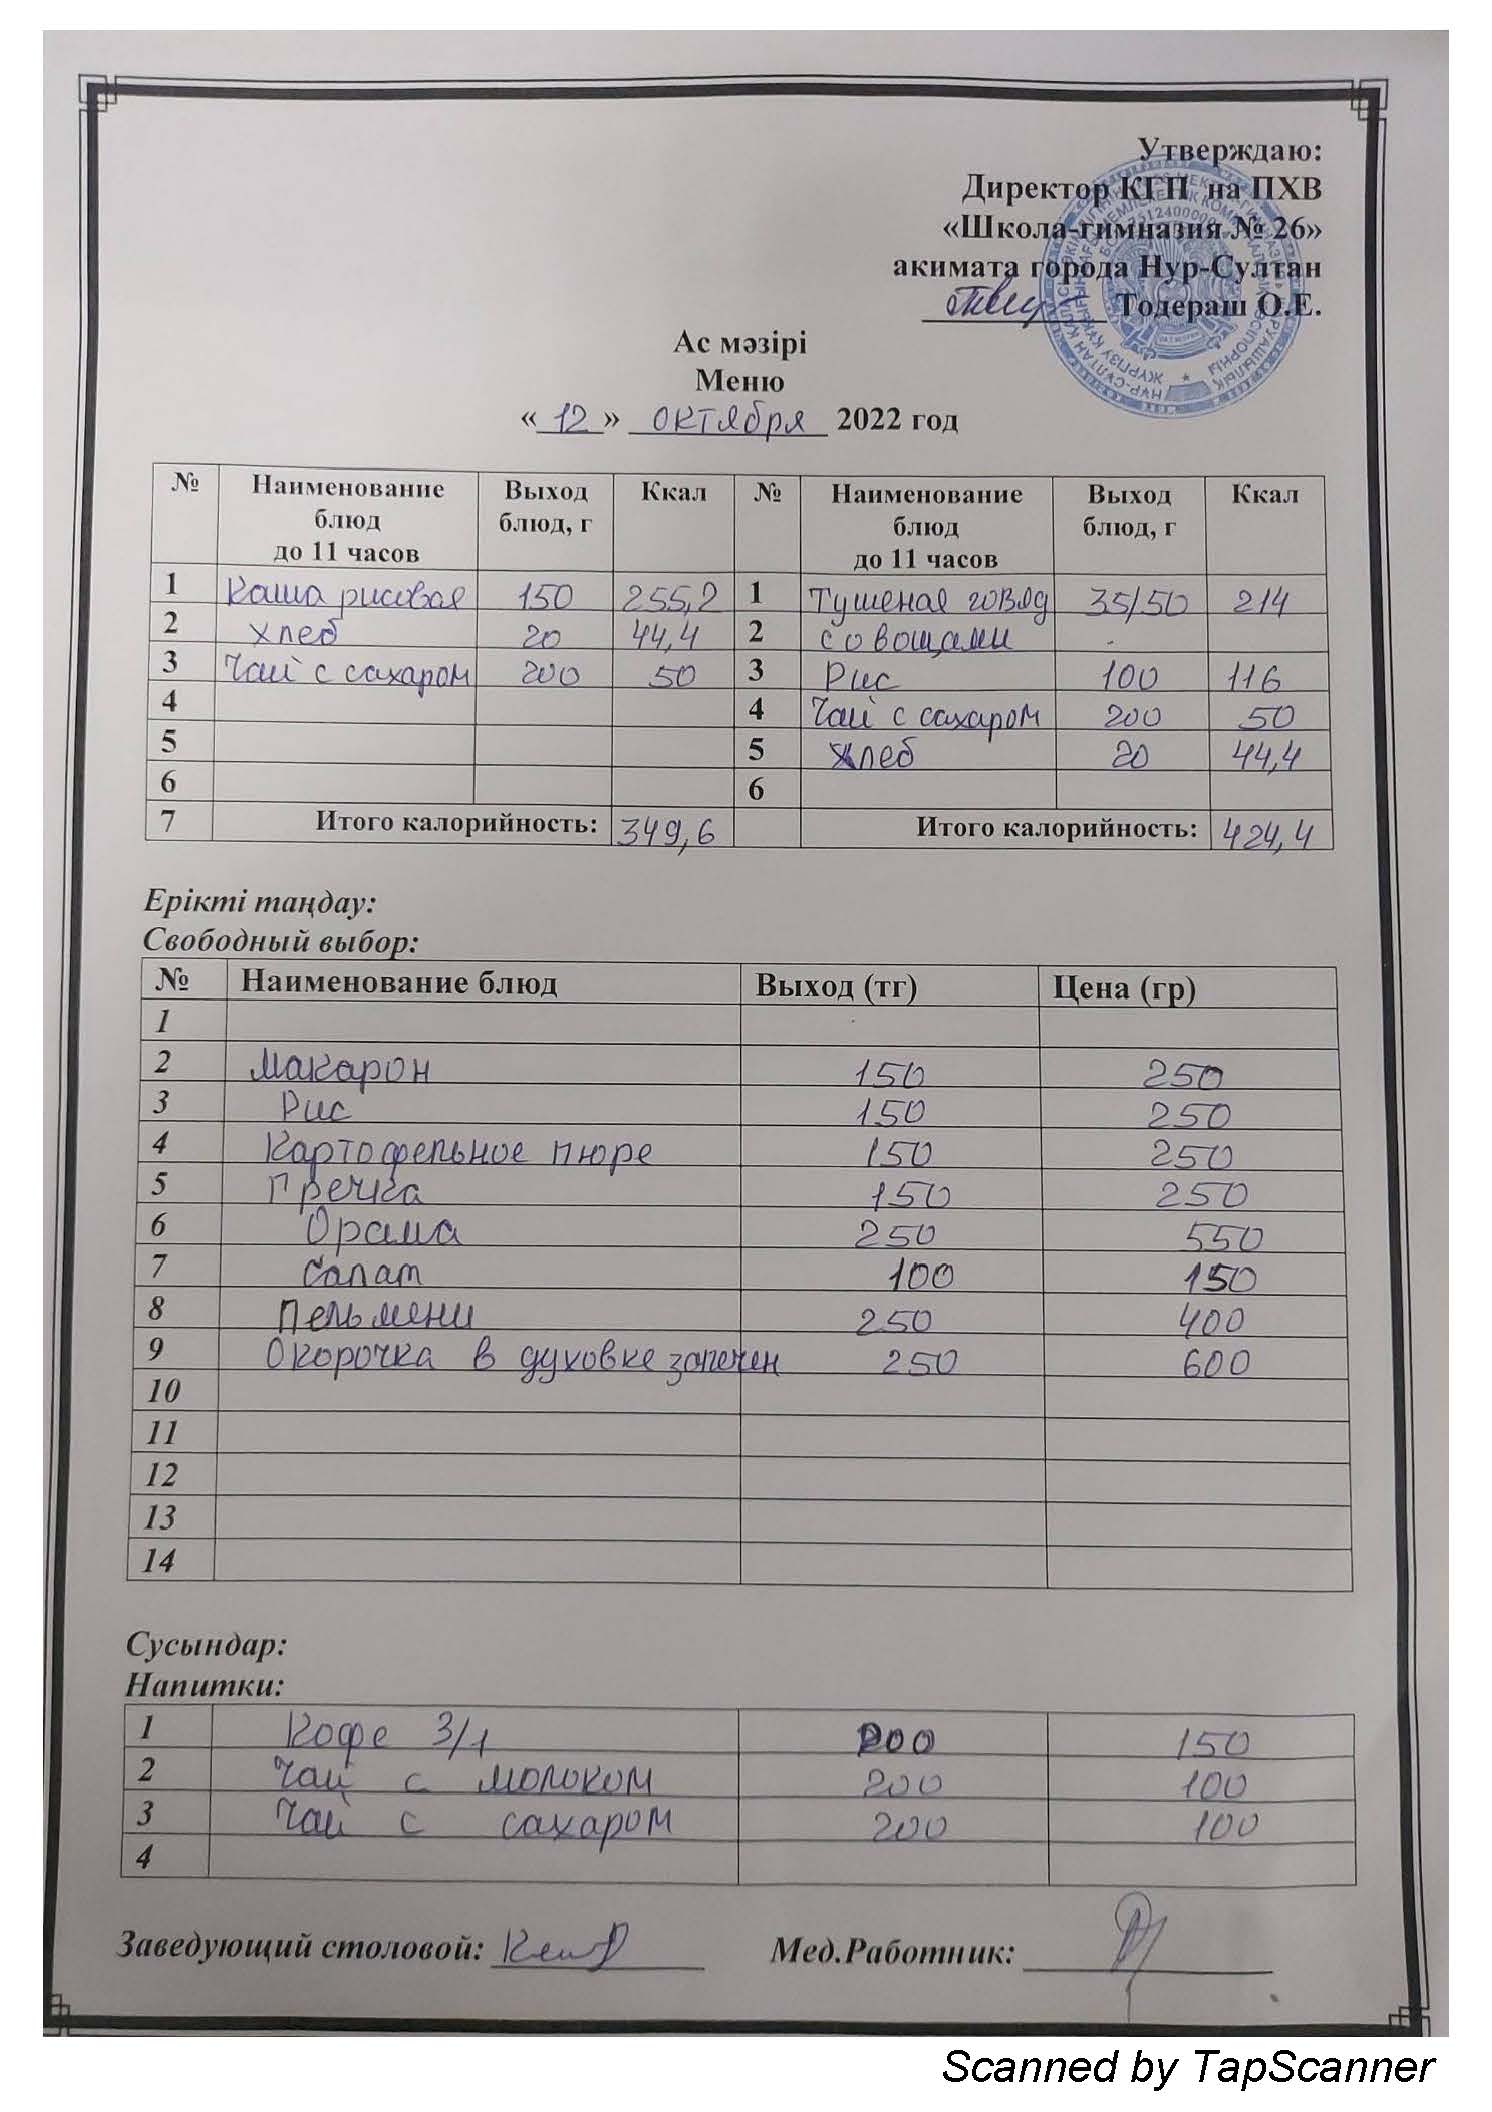 Утверждаю:
Директор КГП на ПХВ
«Школа-гимназия № 26»
акимата города Нур-Султан
Тодераш О.Е.
Ас мәзірі
Меню
«12» октября 2022 год
№ Наименование блюд до 11 часов Выход блюд, г Ккал № Наименование блюд до 11 часов Выход блюд, г Ккал
1 Каша рисовая 150 255,2 1 Тушеная говяд 35/50 214
2 хлеб 20 44,4 2 с овощами
3 Чай с сахаром 200 50 3 Рис 100 116
4 4 Чай с сахаром 200 50
5 5 хлеб 20 44,4
6 6
7 Итого калорийность: 349,6 Итого калорийность: 424,4
Ерікті таңдау:
Свободный выбор:
№ Наименование блюд Выход (тг) Цена (гр)
1
2 Макарон 150 250
3 Рис 150 250
4 Картофельное пюре 150 250
5 Гречка 150 250
6 Орама 250 550
7 Салат 100 150
8 Пельмени 250 400
9 Окорочка в духовке запечен 250 600
10
11
12
13
14
Сусындар:
Напитки:
1 Кофе 3/1 200 150
2 Чай с молоком 200 100
3 Чай с сахаром 200 100
4
Заведующий столовой: Мед.Работник:
Scanned by TapScanner